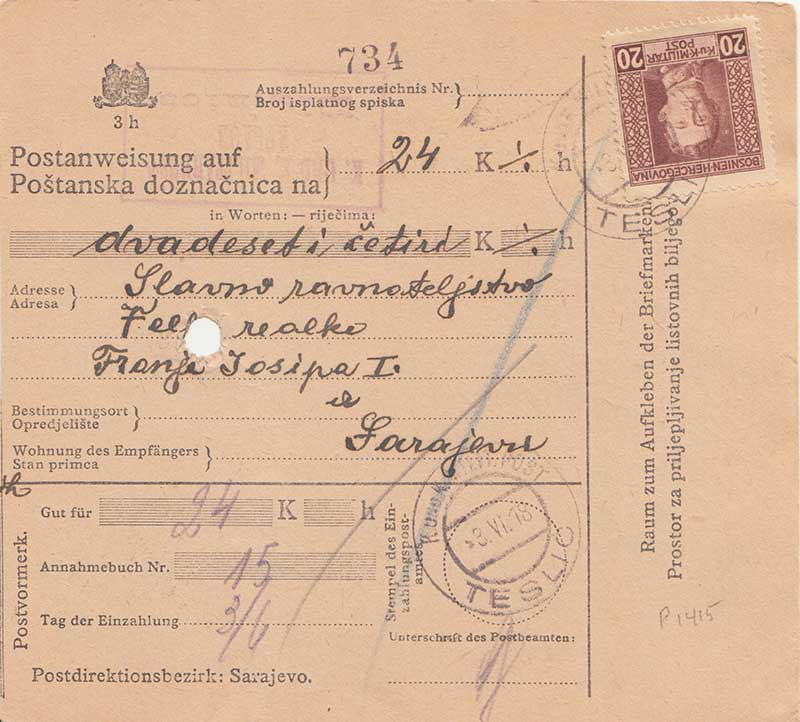 734
Auszahlungsverzeichnis Nr.
Broj isplatnog spiska
3 h
Postanweisung auf
Poštanska doznačnica na
24 K ⁒ h
in Worten: — riječima:
dvadeset i četiri K ⁒ h
Adresse
Adresa
Slavno ravnateljstvo
realke
Franje Josipa I.
u
Bestimmungsort
Opredjelište
Sarajevu
Wohnung des Empfängers
Stan primca
Postvormerk.
Gut für 24 K h
Annahmebuch Nr. 15
Tag der Einzahlung 3/6
Stempel des Ein-
zahlungspost-
amtes
K.u.K. MILIT. POST
3.VI.18
TESLIC
Unterschrift des Postbeamten:
Postdirektionsbezirk: Sarajevo.
20 20
K.u.K. MILITÄR
POST
BOSNIEN-HERCEGOVINA
TESLIC
Raum zum Aufkleben der Briefmarken.
Prostor za priljepljivanje listovnih biljega
P 1415